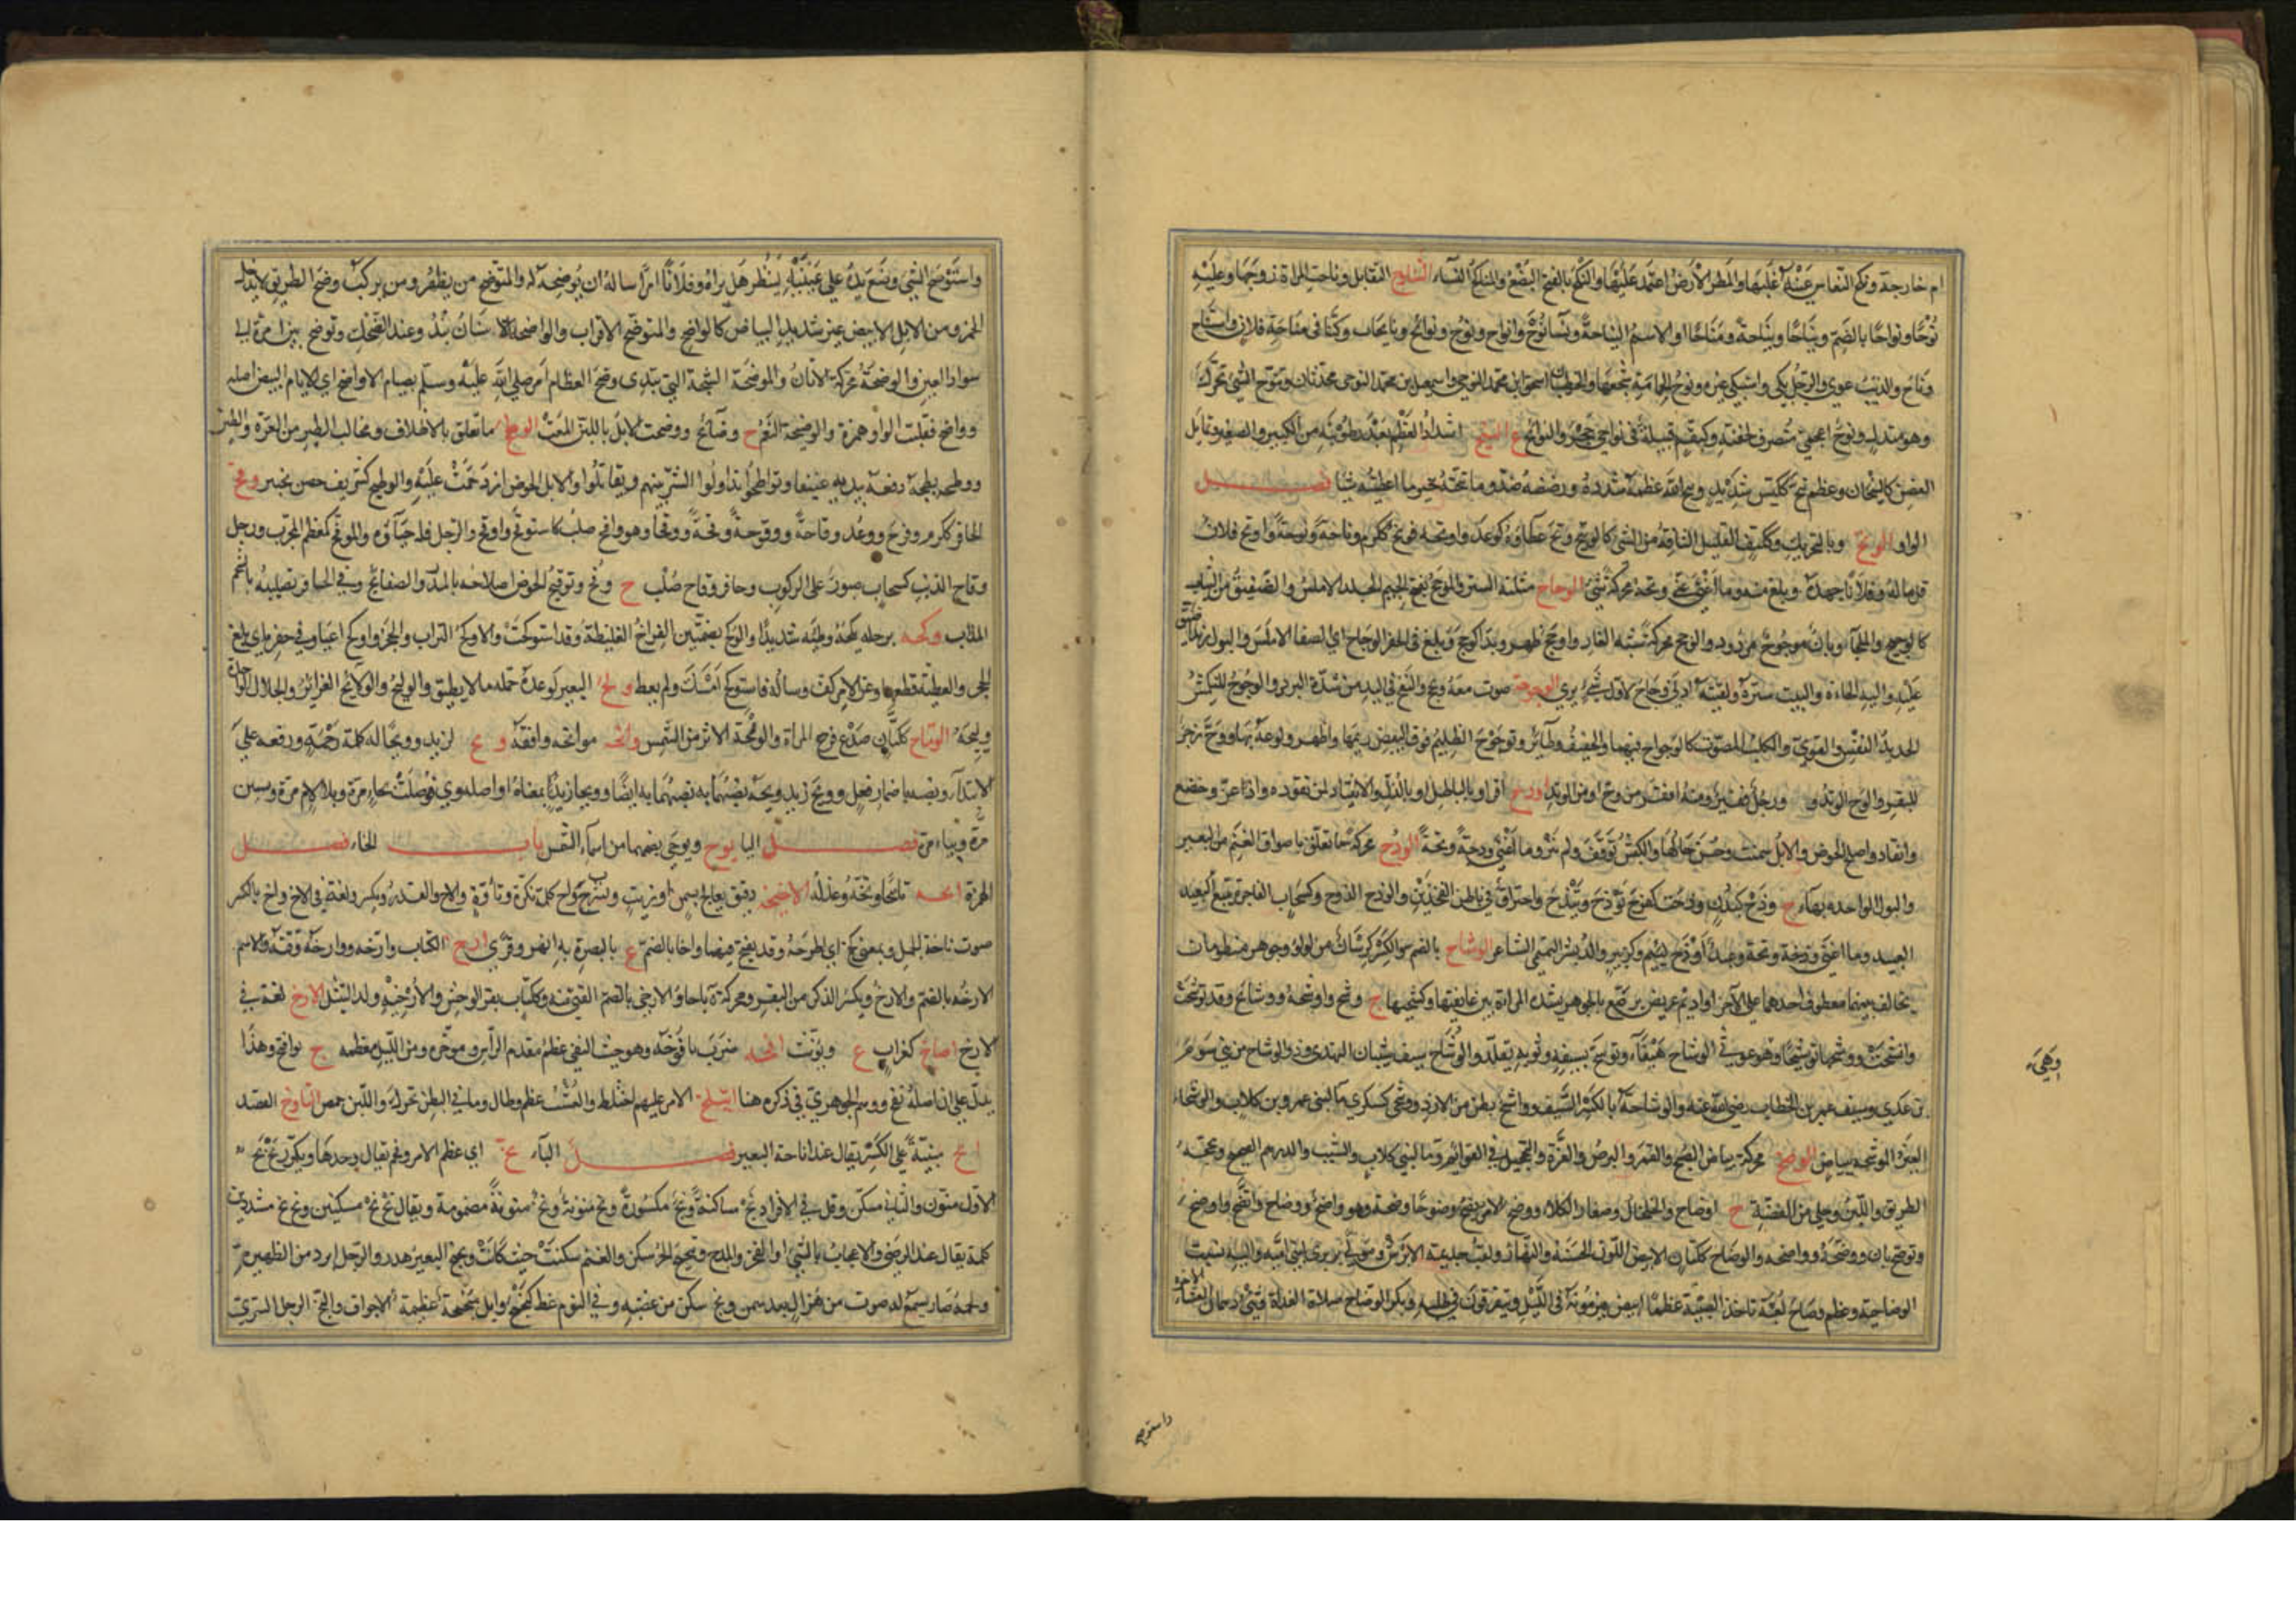 ام خارجة ونكح النعاس عينه غلبها والمطر الأرض اعتمد عليها والنكح بالفتح البضع والمناكح النساء التناوح التقابل وناحت المراة زوجها وعليه
نوحا ونواحا بالضم ونياحا ونياحة ومناحا والاسم النياحة ونساء نوح وانواح ونوح ونوائح ونائحات وكنا في مناحة فلان واستناح
وناح والذئب عوى والرجل بكى واستبكى غيره ونوح الحمامة سجعها والخطيبان اسحق ابن محمد النوحي واسمعيل بن محمد النوحي محدثان وتنوح الشيء تحرك
وهو متدل ونوح اعجمي منصرف لخفته وكبقم قبيلة في نواحي حجر والنوائح ع النيح اشتداد العظم بعد رطوبته من الكبير والصغير وتمايل
الغصن كالنيحان وعظم نيح ككيس شديد ونيح الله عظمه شدده ورضضه ضد وما نيحته بخير ما اعطيته شيئا فصل
الواو الوتح وبالتحريك وككتف القليل التافه من الشئ كالوتيح وتح عطاءه كوعد واوتحه فوتح ككرم وتاحة ووتوحة واوتح فلان
قل ماله وفلانا جهده وبلغ منه وما اغنى عني وتحة محركة شيئا الوجاح مثلثة الستر والموجح بفتح الجيم الجلد الاملس والصفيق من الثياب
كالوجيح والملجأ وباب موجوح مردود والوجح محركة شبه الغار واوجح ظهر وبدا كوجح وبلغ في الحفر الوجاح اي الصفا الاملس والبول زيدا ضيق
عليه واليه الجاه والبيت ستره ولقيته ادنى وجاح لاول شيء يرى الوحوحة صوت معه بحح والنفخ في اليد من شدة البرد والوحوح المنكمش
الحديد النفس والقوي والكلب المصوت كالوحواح فيهما والخفيف وطائر وتوحوح الظليم فوق البيض رئمها واظهر ولوعه بها ووح زجر
للبقر والوح الوتد و رجل فقير ومنه افقر من وح او من الوتد اودح اقر او بالباطل او بالذل والانقياد لمن يقوده واذعن وخضع
وانقاد واصلح الحوض والابل سمنت وحسن حالها والكبش توقف ولم ينز وما اغنى ودحة وتحة الوذح محركة ما تعلق باصواف الغنم من البعر
والبول الواحدة بهاء ج وذح كبدن وذحت كفرح توذح وتيذح واحتراق في باطن الفخذين والوذح الذوح وكسحاب الفاجرة تتبع العبيد
العبيد وما اغنى وذحة وتحة وعبد اوذح لئيم وكزبير والد بشر التميمي الشاعر الوشاح بالضم والكسر كرسان من لولو وجوهر منظومان
يخالف بينهما معطوف احدهما على الاخر او اديم عريض يرصع بالجوهر تشده المراة بين عاتقيها وكشحيها ج وشح واوشحة ووشائح وقد توشحت
واتشحت ووشحتها توشيحا وهو عوسى الوشاح هيفاء وتوشح بسيفه وثوبه تقلد والوشاح سيف شيبان النهدي وذو الوشاح من بني سوم
بن عدي وسيف عمر بن الخطاب رضي الله عنه والوشاحة بالكسر السيف وواشح بطن من الازد ووشحى كسكرى ماء لبني عمرو بن كلاب والوشحاء
العنز الموشحة ببياض الوضح محركة بياض الصبح والقمر والبرص والغرة والتحجيل في القوائم وماء لبني كلاب والشيب والدرهم الصحيح ومحجة
الطريق واللبن وحلى من الفضة ج اوضاح والخلخال وصغار الكلاء ووضح الامر يضح وضوحا وضحة وهو واضح ووضاح واتضح واوضح
وتوضح بان ووضحه واوضحه والوضاح ككتان الابيض اللون الحسنه والنهار ولقب جذيمة الابرش ومولى بربري لبني امية واليه نسبت
الوضاحية وعظم وضاح لعبة تاخذ الصبية عظما ابيض فيرمونه في الليل ويتفرقون في طلبه وبكر الوضاح صلاة الغداة وثنى دهمان العشاء الاخرة
وهي
واستوضح
واستوضح الشيء وضع يده على عينيه ينظر هل يراه وفلانا امرا ساله ان يوضحه له والمتوضح من يظهر ومن يركب وضح الطريق لا يدخل
الخمر ومن الابل الابيض غير شديد البياض كالواضح والمتوضح الاقراب والواضحة الاسنان تبدو عند الضحك وتوضح بين امرة الى
سواد العين والوضحة محركة الاتان والموضحة الشجة التي تبدي وضح العظام امر صلى الله عليه وسلم بصيام الاواضح اي الايام البيض اصله
وواضح فقلبت الواو همزة والوضيحة النعم ج وضائح ووضحت الابل باللبن المعت الوطح ما تعلق بالاظلاف ومخالب الطير من العرة والطين
ووطحه يطحه دفعه بيديه عنيفا وتواطحوا تداولوا الشر بينهم وتقاتلوا والابل الحوض ازدحمت عليه والوطيح كشريف حصن بخيبر وقح
الحافر ككرم وفرح ووعد وقاحة ووقوحة وقحة ووقحا وهو واقح صلب كاستوقح واوقح والرجل قل حياؤه والموقح كمعظم المجرب ورجل
وقاح الذنب كسحاب صبور على الركوب وحافر وقاح صلب ج وقح وتوقيح الحوض اصلاحه بالمدر والصفائح وفي الحافر تصليبه بالشحم
المذاب وكحه برجله يكحه وطئه شديدا والوكح بضمتين الفراخ الغليظة وقد استوكحت والاوكح التراب والحجر واوكح اعيا وفي حفره اي بلغ
الحجر والعطية قطعها وعن الامر كف وساله فاستوكح امسك ولم يعط ولح البعير كوعده حمله ما لا يطيق والوليح والولائح الغرائر والجلال الواحدة
وليحة الوماح ككتان صدع فرج المراة والومحة الاثر من الشمس وانحه موانحة وافقه ويح لزيد وويحا له كلمة رحمة ورفعه على
الابتداء ونصبه باضمار فعل وويح زيد وويحه نصبهما به نصبهما به ايضا وويحا زيد بمعناه او اصله وي فوصلت بحاء مرة وبلام مرة وبسين
مرة وبباء مرة فصل اليا يوح ويوحى بضمهما من اسماء الشمس باب الخاء فصل
الهمزة اخه تاخيخا وبخه وعذله الاخيخة دقيق يعالج بسمن او زيت ويشرب واخ كلمة تكره وتاوه والاخ والقذر ويكسر ولغة في الاخ واخ بالكسر
صوت اناخة الجمل وبمعنى كخ اي اطرحه وقد يفتح فيهما واخا بالضم ع بالبصرة به انهر وقرى ارخ الكتاب وارخه وآرخه وقته والاسم
الارخة بالضم والارخ ويكسر الذكر من البقر ومحركة ة باجا والارخي بالضم الفتي منه وككتاب بقر الوحش والارخية ولد الثيتل الازخ لغة في
الارخ اضاخ كغراب ع ويؤنث افخه ضرب يافوخه وهو حيث التقى عظم مقدم الراس ومؤخره ومن الليل معظمه ج يوافيخ وهذا
يدل على ان اصله يفخ ووهم الجوهري في ذكره هنا ايتلخ الامر عليهم اختلط والعشب عظم وطال وما في البطن تحرك واللبن حمض التاويخ القصد
اخ مبنية على الكسر يقال عند اناخة البعير فصل الباء بخ اي عظم الامر وفخم تقال وحدها وتكرر بخ بخ
الاول منون والثاني مسكن وقل في الافراد بخ ساكنة وبخ مكسورة وبخ منونة وبخ منونة مضمومة ويقال بخ بخ مسكنين وبخ بخ مشددين
كلمة يقال عند الرضى والاعجاب بالشيء او الفخر والمدح وتبخبخ الحر سكن والغنم سكنت حيث كانت وبخبخ البعير هدر والرجل ابرد من الظهيرة
ولحمه صار يسمع له صوت من هزال بعد سمن وبخ سكن من غضبه وفي النوم غط كبخبخ وابل مبخبخة عظيمة الاجواف والبخ الرجل السري